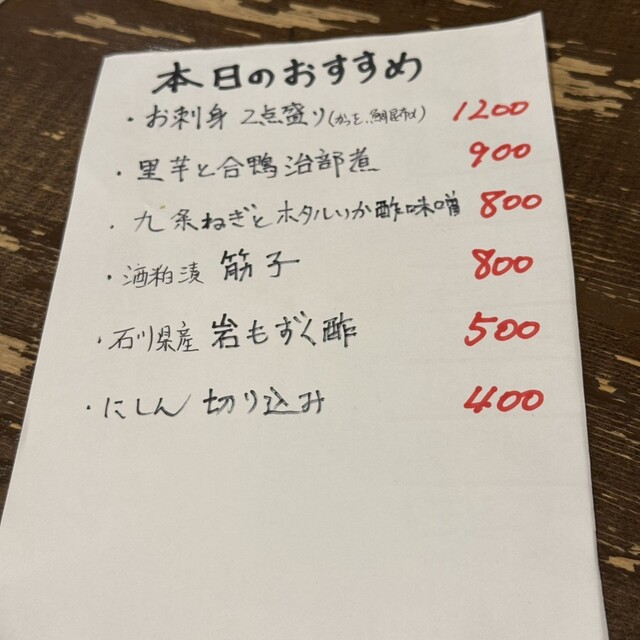 本日のおすすめ
・お刺身 2点盛り(かつを、鯛昆布〆) 1200
・里芋と合鴨治部煮 900
・九条ねぎとホタルいか酢味噌 800
・酒粕漬 筋子 800
・石川県産 岩もずく酢 500
・にしん 切り込み 400